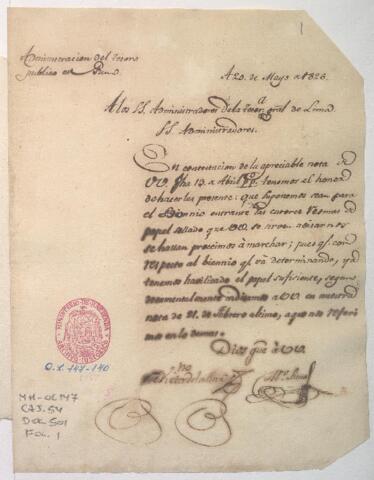 1
Administracion del Tesoro
publico en Puno
A 20. de Mayo de 1826.
A los SS. Administradores de la Tesor.a gral de Lima.
SS. Administradores.
En contestacion de la apreciable nota de
VV. fha 13. de Abril tenemos el honor
de hacerles presente: que suponemos sean para
el Biennio entrante las catorce Resmas de
papel sellado que VV. se sirven avisarnos
se hallan proccimos á marchar; pues q.e con
respecto al biennio q.e vá determinando, ya
tenemos havilitado el papel suficiente, segun
documentalmente indicamos á VV. en nuestra
nota de 21. de Febrero ultimo, a que nos referi-
mos en lo demas.
Dios gue á VV.
O.L. 147-140
MH-OL147
CAJ. 54
DOC. 501
FOL. 1